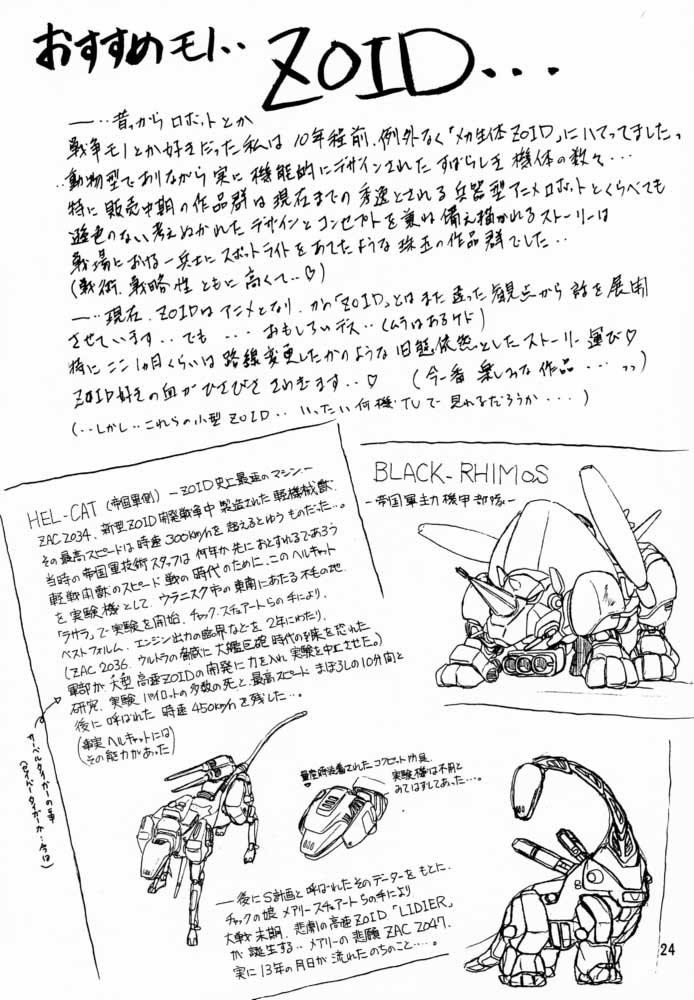 おすすめモノ‥ ZOID...
―‥昔っから ロボットとか
戦争モノとか好きだった私は 10年程前、例外なく「メカ生体ZOID」にハマってましたっ
‥動物型でありながら実に機能的にデザインされた すばらしき機体の数々…
特に販売中期の作品群は現在までの秀逸とされる兵器型アニメロボットとくらべても
遜色のない考えぬかれたデザインとコンセプトを兼ね備え描かれるストーリーは
戦場における一兵士にスポットライトをあてたような珠玉の作品群でした‥
(戦術、戦略性ともに高くて‥♡)
―‥現在、ZOIDはアニメとなり、かの「ZOID」とはまた違った観点から話を展開
させています‥でも …おもしろいデス‥(ムラはあるケド)
特にここ1ヵ月くらいは路線変更したかのような旧態依然としたストーリー運び♡
ZOID好きの血がひさびさ さわぎます‥♡ (今一番楽しみな作品…っっ)
(‥しかし‥これらの小型ZOID‥いったい何機TVで見れるだろうか…)
HEL-CAT (帝国軍側) ―ZOID史上最速のマシン.―
ZAC2034、新型ZOID開発戦争中製造された軽機械獣.
その最高スピードは時速300km/hを超えるとゆうものだった…。
当時の帝国軍技術スタッフは何年か先におとずれるであろう
軽戦闘獣のスピード戦の時代のために、このヘルキャット
を実験機として、ウラニスク市の東南にあたる不毛の地、
「ラサラ」で実験を開始、チャック・スチュアートらの手により、
ベストフォルム、エンジン出力の臨界などを2年にわたり、
(ZAC2036、ウルトラの脅威に大艦巨砲時代の到来を恐れた
軍部が大型高速ZOIDの開発に力を入れ実験を中止させた。)
研究、実験パイロットの多数の死と、最高スピードまぼろしの10分間と
後に呼ばれた 時速450km/hを残した…。
(事実ヘルキャットには
その能力があった)
サーベルタイガーの事
(セイバータイガーか…今は)
BLACK-RHIMOS
―帝国軍主力機甲部隊―
量産時装着されたコクピット防具.
♡実験機は不用と
みてはずしてあった…。
―後にS計画と呼ばれたそのデーターをもとに、
チャックの娘 メアリースチュアートらの手により
大戦末期、悲劇の高速ZOID「LIDIER」
が誕生する‥メアリーの悲願ZAC2047.
実に13年の月日が流れたのちのこと…。
24